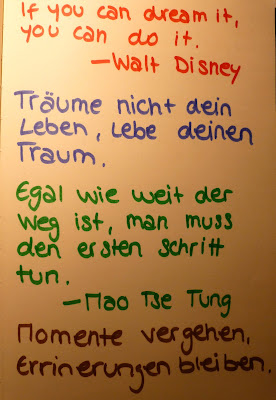 If you can dream it,
you can do it.
—Walt Disney
Träume nicht dein
Leben, lebe deinen
Traum.
Egal wie weit der
Weg ist, man muss
den ersten Schritt
tun.
—Mao Tse Tung
Momente vergehen,
Errinerungen bleiben.